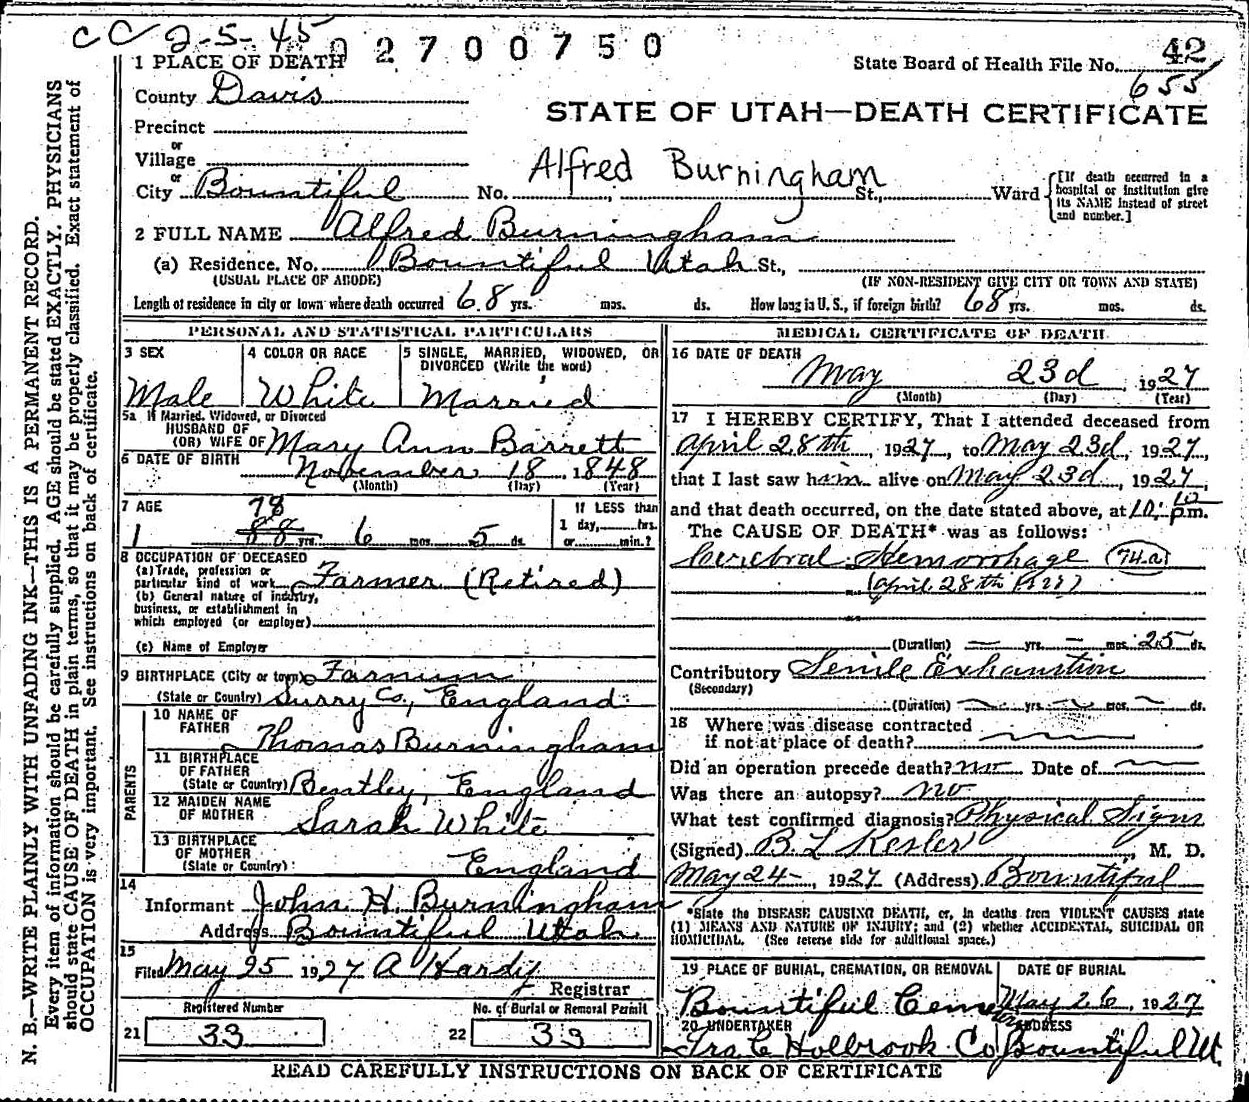 CC 2-5-45
2 2 7 0 0 7 5 0
State Board of Health File No. 42
655
1 PLACE OF DEATH
County Davis
STATE OF UTAH—DEATH CERTIFICATE
Precinct
or
Village
or
City Bountiful No. Alfred Burningham St., Ward
[If death occurred in a hospital or institution give its NAME instead of street and number.]
2 FULL NAME Alfred Burningham
(a) Residence. No. Bountiful Utah St.,
(USUAL PLACE OF ABODE) (IF NON-RESIDENT GIVE CITY OR TOWN AND STATE)
Length of residence in city or town where death occurred 68 yrs. mos. ds. How long in U.S., if foreign birth? 68 yrs. mos. ds.
PERSONAL AND STATISTICAL PARTICULARS
3 SEX
Male
4 COLOR OR RACE
White
5 SINGLE, MARRIED, WIDOWED, OR
DIVORCED (Write the word)
Married
5a If Married, Widowed, or Divorced
HUSBAND OF
(OR) WIFE OF Mary Ann Barrett
6 DATE OF BIRTH November 18, 1848
(Month) (Day) (Year)
7 AGE
78
1 88 yrs. 6 mos. 5 ds.
If LESS than
1 day, hrs.
or min.?
8 OCCUPATION OF DECEASED
(a) Trade, profession or
particular kind of work Farmer (Retired)
(b) General nature of industry,
business, or establishment in
which employed (or employer)
(c) Name of Employer
9 BIRTHPLACE (City or town)
(State or Country) Surry Co., England
PARENTS
10 NAME OF
FATHER Thomas Burningham
11 BIRTHPLACE
OF FATHER
(State or Country) Bentley, England
12 MAIDEN NAME
OF MOTHER Sarah White
13 BIRTHPLACE
OF MOTHER
(State or Country) England
14
Informant John H. Burningham
Address Bountiful Utah
15
Filed May 25 1927 A Hardy
Registrar
Registered Number
21 33
No. of Burial or Removal Permit
22 33
MEDICAL CERTIFICATE OF DEATH
16 DATE OF DEATH
May 23d, 1927
(Month) (Day) (Year)
17 I HEREBY CERTIFY, That I attended deceased from
April 28th, 1927, to May 23d, 1927,
that I last saw him alive on May 23d, 1927,
and that death occurred, on the date stated above, at 10:10 p.m.
The CAUSE OF DEATH* was as follows:
Cerebral Hemorrhage (74a)
(April 28th
(Duration) — yrs. — mos. 25 ds.
Contributory Senile Exhaustion
(Secondary)
(Duration) — yrs. — mos. — ds.
18 Where was disease contracted
if not at place of death?
Did an operation precede death? no Date of
Was there an autopsy? no
What test confirmed diagnosis? Physical Signs
(Signed) B. L Kesler, M. D.
May 24-, 1927 (Address) Bountiful
*State the DISEASE CAUSING DEATH, or, in deaths from VIOLENT CAUSES state
(1) MEANS AND NATURE OF INJURY; and (2) whether ACCIDENTAL, SUICIDAL OR
HOMICIDAL. (See reverse side for additional space.)
19 PLACE OF BURIAL, CREMATION, OR REMOVAL
Bountiful Cemetery
DATE OF BURIAL
May 26, 1927
20 UNDERTAKER ADDRESS
Ira C Holbrook Co Bountiful Ut.
READ CAREFULLY INSTRUCTIONS ON BACK OF CERTIFICATE
N. B.—WRITE PLAINLY WITH UNFADING INK—THIS IS A PERMANENT RECORD.
Every item of information should be carefully supplied. AGE should be stated EXACTLY. PHYSICIANS
should state CAUSE OF DEATH in plain terms, so that it may be properly classified. Exact statement of
OCCUPATION is very important. See instructions on back of certificate.